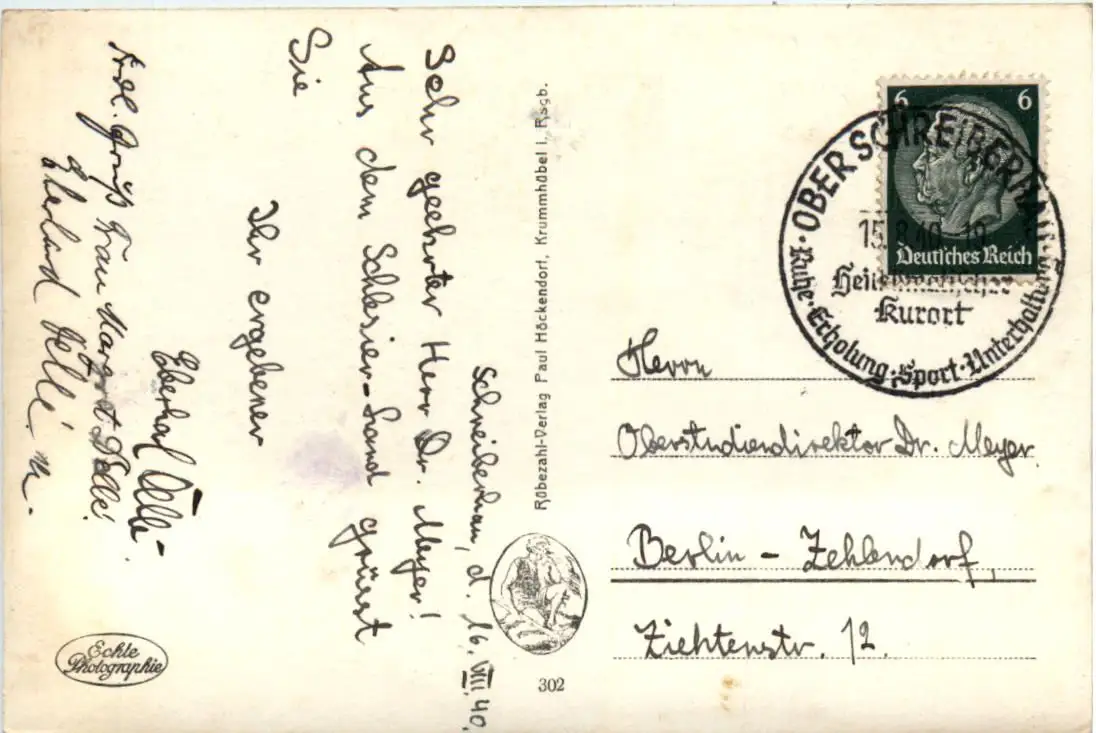 Schreiberhau, d. 16. VIII. 40.
Sehr geehrter Herr Dr. Meyer!
Aus dem Schlesier-Land grüsst
Sie
Ihr ergebener
Frau Margret
Rübezahl-Verlag Paul Höckendorf, Krummhübel i. Rsgb.
302
Echte
Photographie
6 6
Deutsches Reich
OBERSCHREIBERHAU
15.8.40.19
Heilklimatischer
Kurort
Ruhe·Erholung·Sport·Unterhaltung
Herrn
Oberstudiendirektor Dr. Meyer.
Berlin - Zehlendorf,
Ziehtenstr. 12.